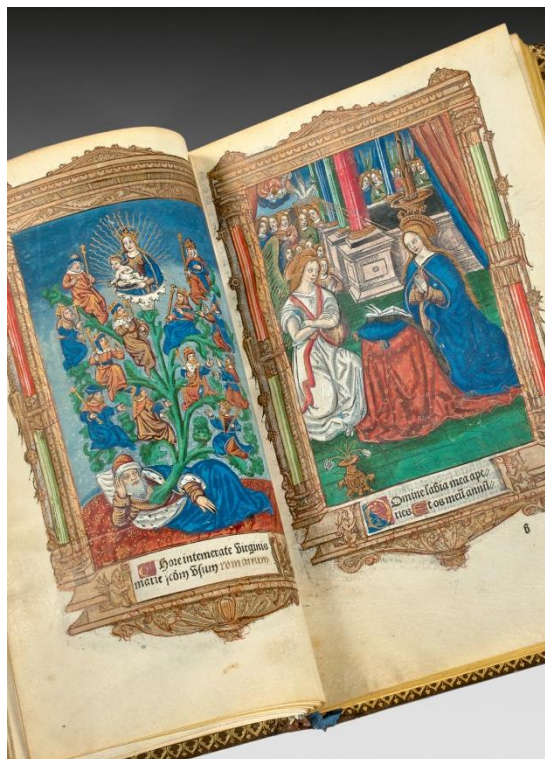 Hore intemerate Virginis
marie scḋm Vsum romanum
Domine labia mea ape⸗
ries Et os meū annū⸗
b